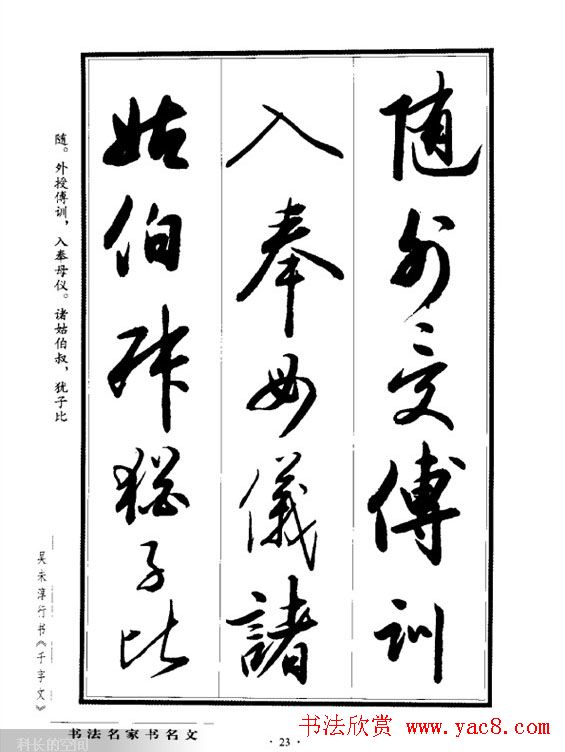 随外受傅訓
入奉母儀諸
姑伯叔猶子比
随。外授傅训，入奉母仪。诸姑伯叔，犹子比
吴未淳行书《千字文》
书法名家书名文
科长的空间
· 23 ·
书法欣赏 www.yac8.com